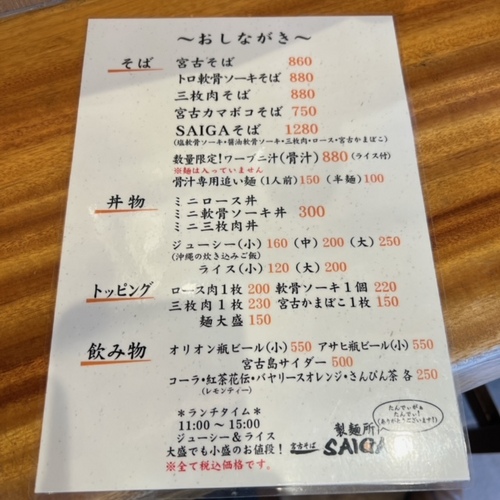 ～おしながき～
そば 宮古そば 860
トロ軟骨ソーキそば 880
三枚肉そば 880
宮古カマボコそば 750
SAIGAそば 1280
(塩軟骨ソーキ・醤油軟骨ソーキ・三枚肉・ロース・宮古かまぼこ)
数量限定!ワーブニ汁(骨汁) 880 (ライス付)
※麺は入っていません
骨汁専用追い麺 (1人前) 150 (半麺) 100
丼物 ミニロース丼
ミニ軟骨ソーキ丼 300
ミニ三枚肉丼
ジューシー(小) 160 (中) 200 (大) 250
(沖縄の炊き込みご飯)
ライス(小) 120 (大) 200
トッピング ロース肉1枚 200 軟骨ソーキ1個 220
三枚肉1枚 230 宮古かまぼこ1枚 150
麺大盛 150
飲み物 オリオン瓶ビール(小) 550 アサヒ瓶ビール(小) 550
宮古島サイダー 500
コーラ・紅茶花伝・バヤリースオレンジ・さんぴん茶 各 250
(レモンティー)
＊ランチタイム＊
11:00 〜 15:00
ジューシー＆ライス
大盛でも小盛のお値段!
※全て税込価格です。
たんでぃがぁ
たんでぃ!
(ありがとうございます!)
製麺所
宮古そば SAIGA